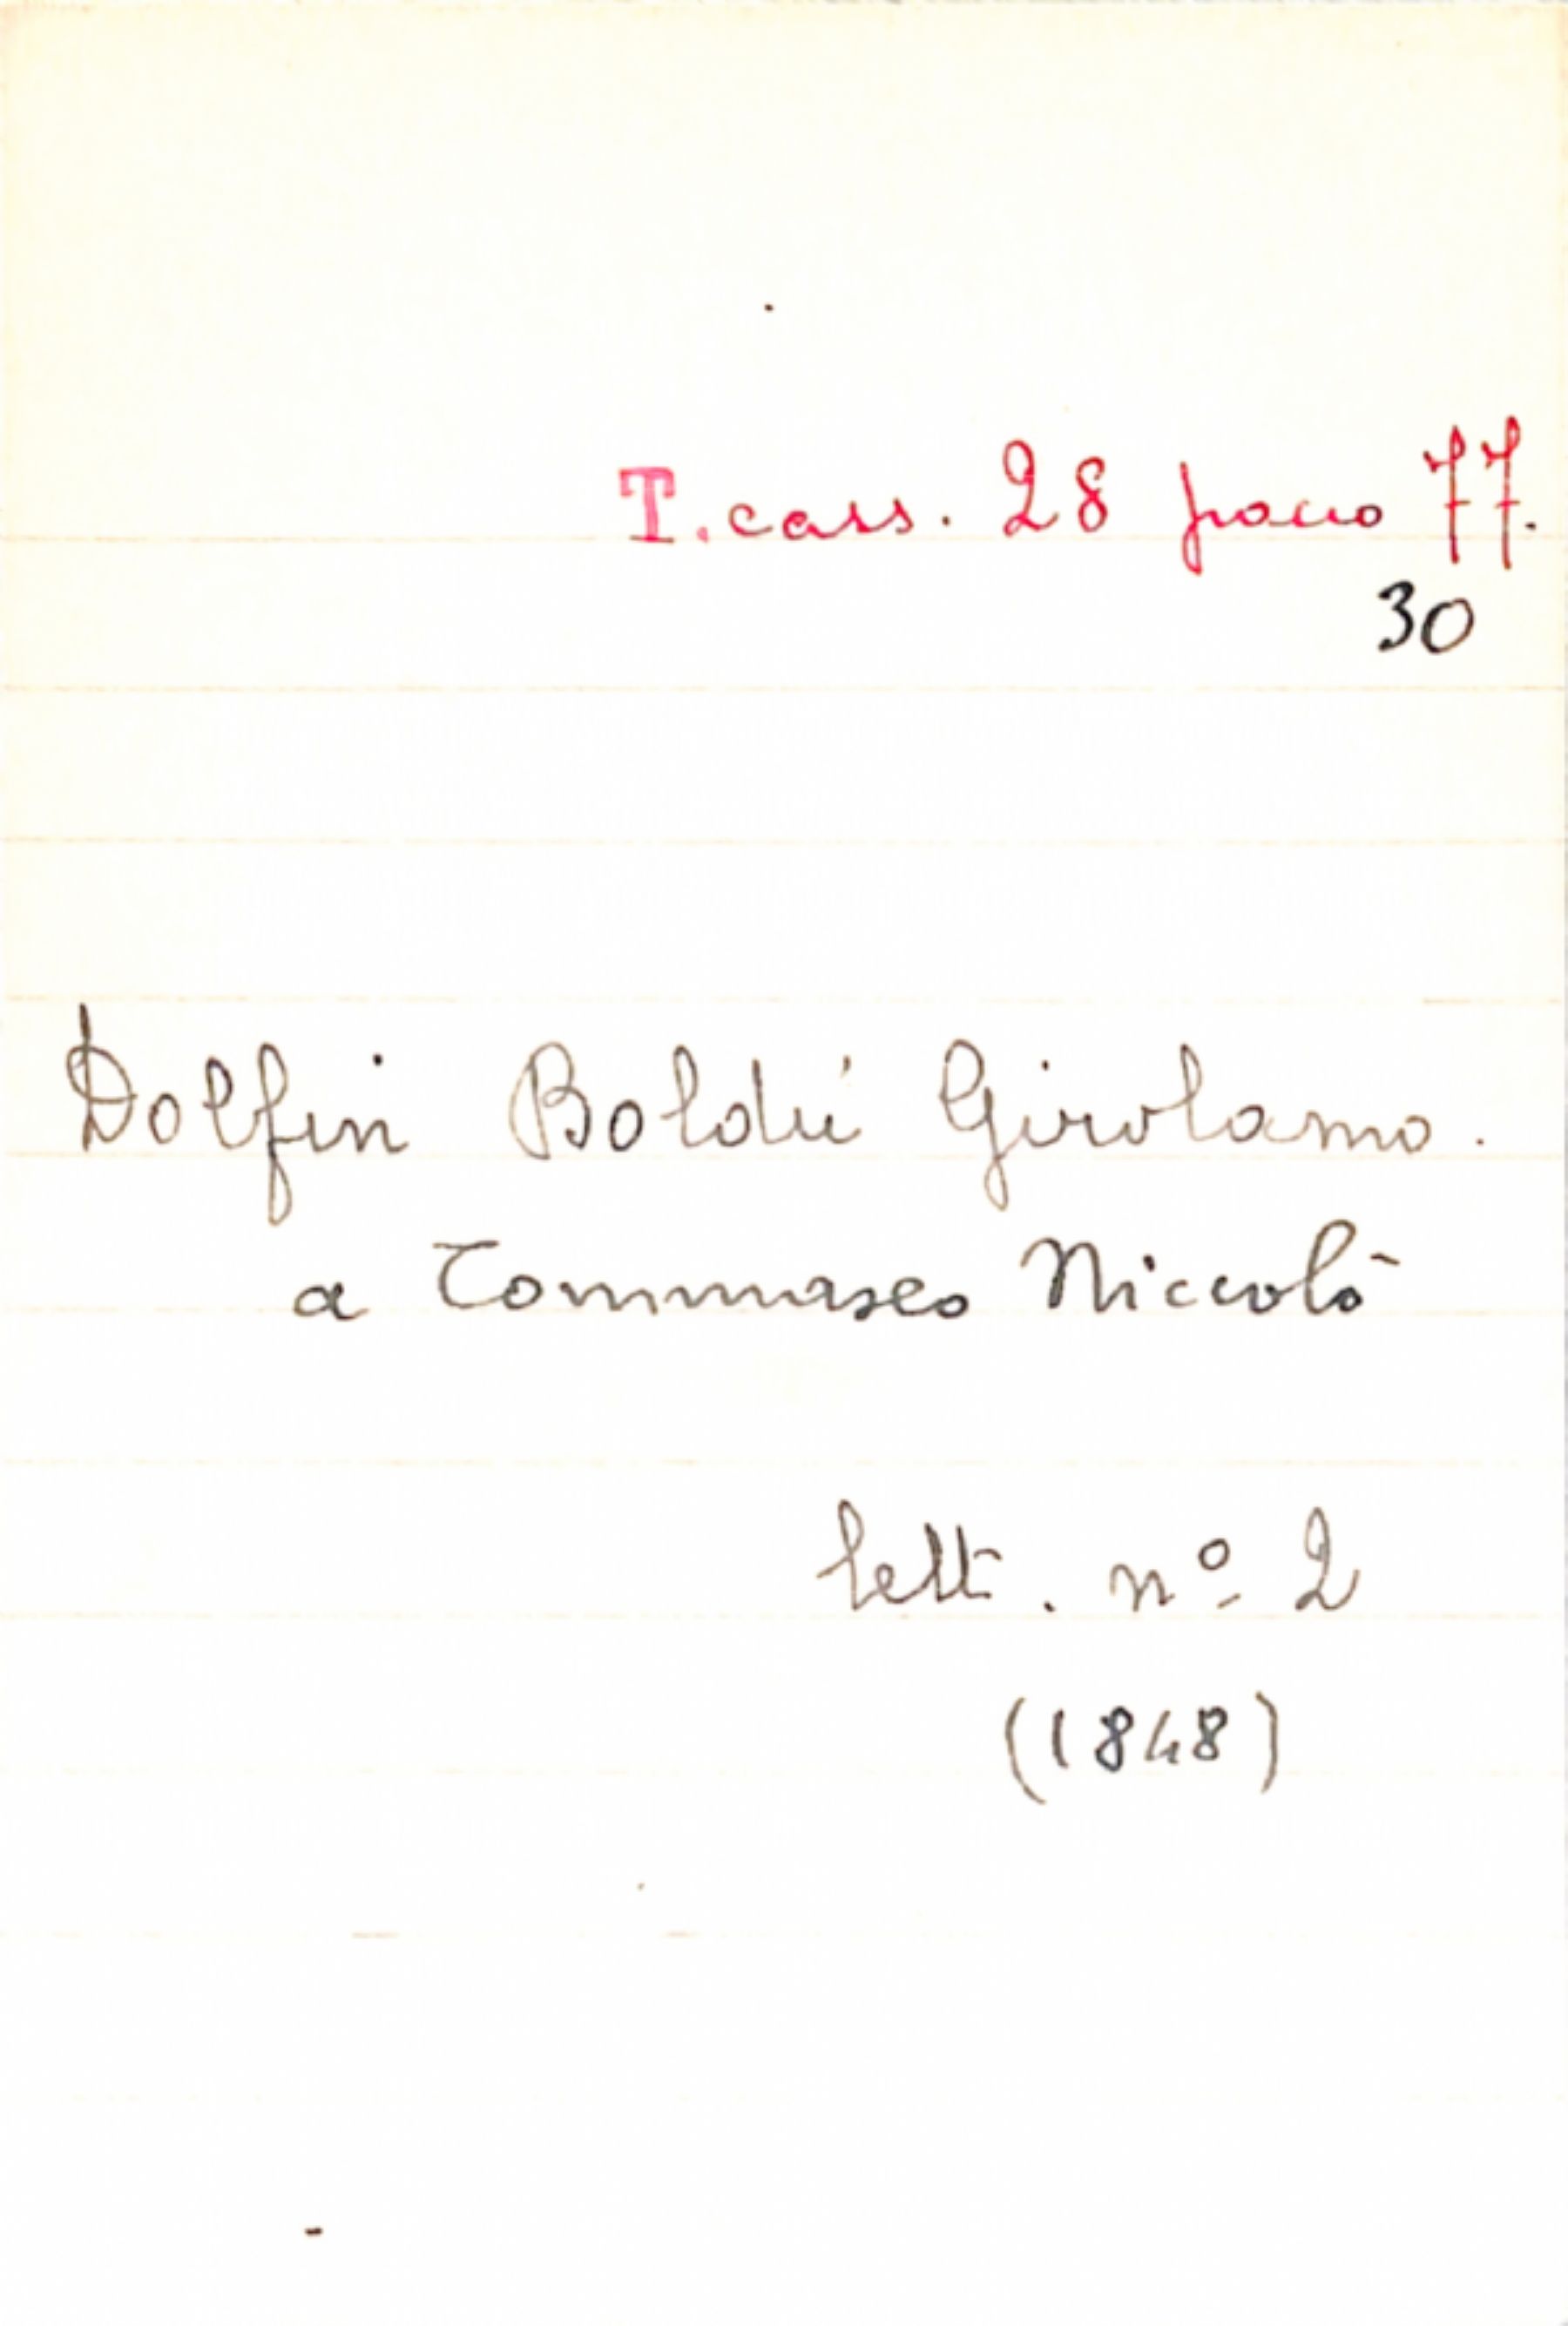 T. cass. 28 pacco 77.
30
Dolfin Boldú Girolamo.
a Tommaseo Niccolò
lett. nº 2
(1848)